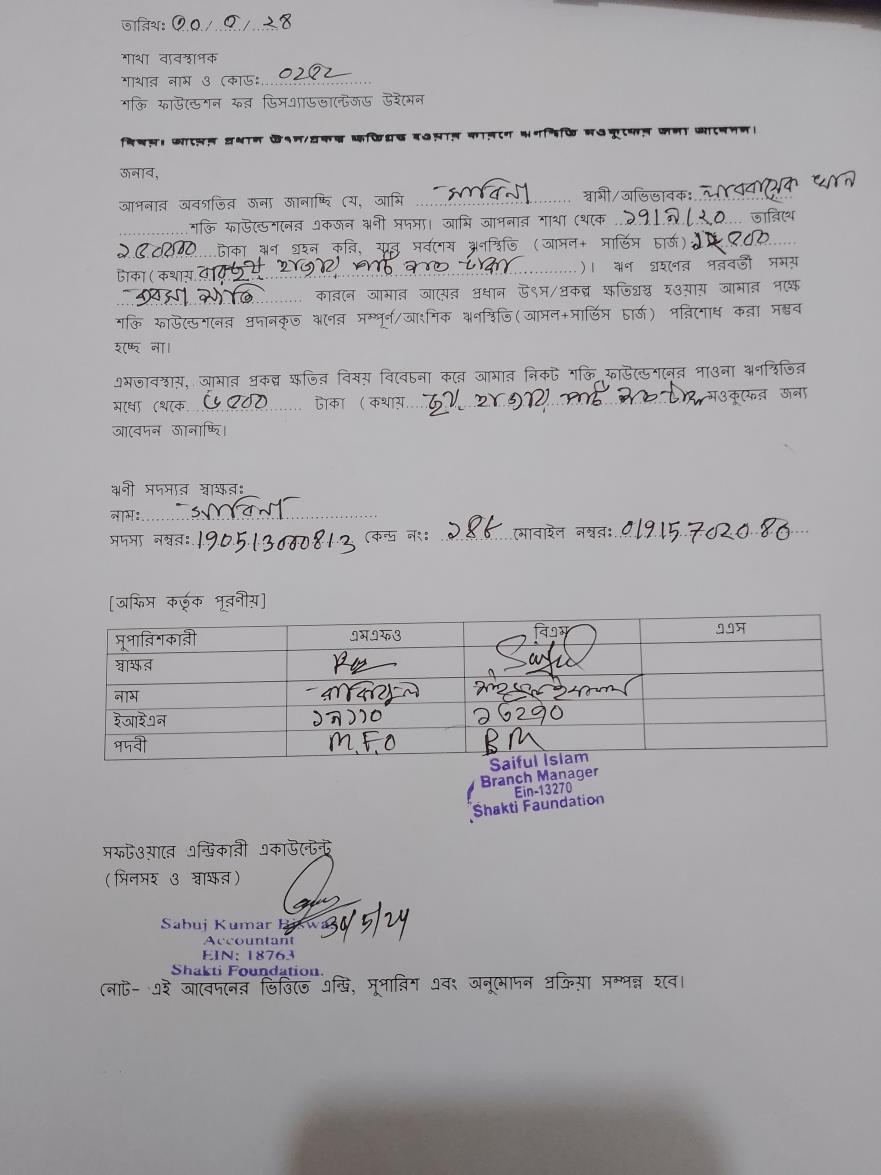 তারিখ: ৩০/৫/২৪
শাখা ব্যবস্থাপক
শাখার নাম ও কোড: 0292
শক্তি ফাউন্ডেশন ফর ডিসএ্যাডভান্টেজড উইমেন
বিষয়: আয়ের প্রধান উৎস/প্রকল্প ক্ষতিগ্রস্থ হওয়ার কারনে ঋনস্থিতি মওকুফের জন্য আবেদন।
জনাব,
আপনার অবগতির জন্য জানাচ্ছি যে, আমি সাবিনা স্বামী/অভিভাবক: খান
শক্তি ফাউন্ডেশনের একজন ঋনী সদস্য। আমি আপনার শাখা থেকে তারিখে
টাকা ঋন গ্রহন করি, যার সর্বশেষ ঋনস্থিতি (আসল+ সার্ভিস চার্জ)
টাকা (কথায় হাজার পাঁচ শত টাকা)। ঋন গ্রহনের পরবর্তী সময়
কারনে আমার আয়ের প্রধান উৎস/প্রকল্প ক্ষতিগ্রস্থ হওয়ায় আমার পক্ষে
শক্তি ফাউন্ডেশনের প্রদানকৃত ঋনের সম্পূর্ন/আংশিক ঋনস্থিতি (আসল+সার্ভিস চার্জ) পরিশোধ করা সম্ভব
হচ্ছে না।
এমতাবস্থায়, আমার প্রকল্প ক্ষতির বিষয় বিবেচনা করে আমার নিকট শক্তি ফাউন্ডেশনের পাওনা ঋনস্থিতির
মধ্যে থেকে ৬৫০০ টাকা (কথায় ছয় হাজার পাঁচ শত টাকা মওকুফের জন্য
আবেদন জানাচ্ছি।
ঋনী সদস্যর স্বাক্ষর:
নাম: সাবিনা
সদস্য নম্বর: 190513000813 কেন্দ্র নং: মোবাইল নম্বর: 01915702080
[অফিস কর্তৃক পূরনীয়]
সুপারিশকারী এমএফও বিএম এএস
স্বাক্ষর Saiful
নাম
ইআইএন ১৩২৭০
পদবী M.F.O BM
Saiful Islam
Branch Manager
Ein-13270
Shakti Faundation
সফটওয়ারে এন্ট্রিকারী একাউন্টেন্ট
(সিলসহ ও স্বাক্ষর)
30/5/24
Sabuj Kumar Biswas
Accountant
EIN: 18763
Shakti Foundation.
নোট- এই আবেদনের ভিত্তিতে এন্ট্রি, সুপারিশ এবং অনুমোদন প্রক্রিয়া সম্পন্ন হবে।